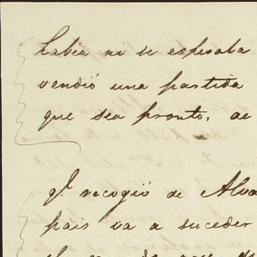 había ni se esperaba
vendió una partida
que sea pronto, de
qᵉ recogió de Alva
pais va a suceder